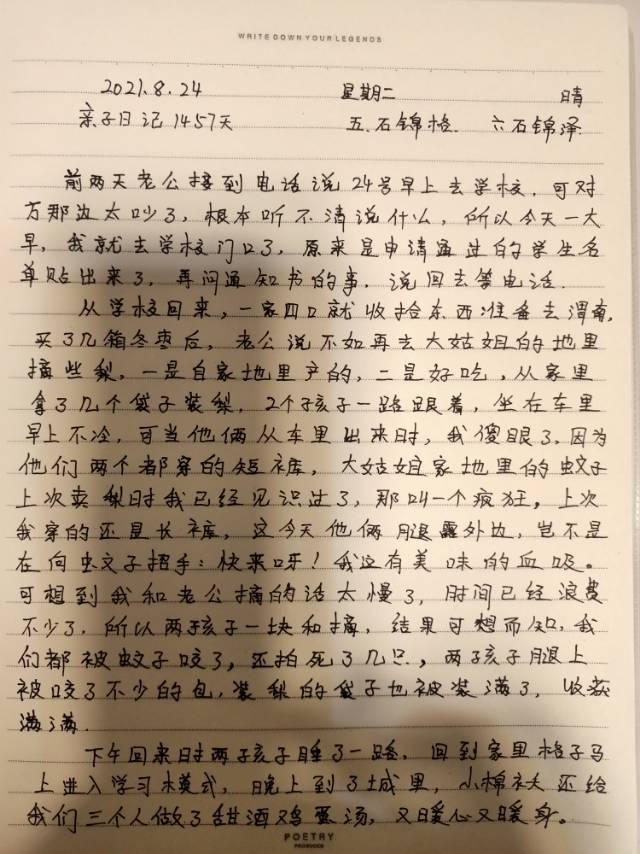 WRITE DOWN YOUR LEGENDS
2021.8.24 星期二 晴
亲子日记1457天 五.石锦格. 六石锦泽
前两天老公接到电话说24号早上去学校,可对
方那边太吵了,根本听不清说什么,所以今天一大
早,我就去学校门口了,原来是申请通过的学生名
单贴出来了,再问通知书的事,说回去等电话.
从学校回来,一家四口就收拾东西准备去渭南,
买了几箱冬枣后,老公说不如再去大姑姐的地里
摘些梨,一是自家地里产的,二是好吃,从家里
拿了几个袋子装梨,2个孩子一路跟着,坐在车里
早上不冷,可当他俩从车里出来时,我傻眼了,因为
他们两个都穿的短裤,大姑姐家地里的蚊子
上次卖梨时我已经见识过了,那叫一个疯狂,上次
我穿的还是长裤,这今天他俩腿露外边,岂不是
在向蚊子招手:快来呀!我这有美味的血吸。
可想到我和老公摘的话太慢了,时间已经浪费
不少了,所以两孩子一块和摘,结果可想而知,我
们都被蚊子咬了,还拍死了几只,两子孩子腿上
被咬了不少的包,装梨的袋子也被装满了,收获
满满.
下午回来时两子孩子睡了一路,回到家里格子马
上进入学习模式,晚上到了城里,小棉袄还给
我们三个人做了甜酒鸡蛋汤,又暖心又暖身。
POETRY
PRODUCER